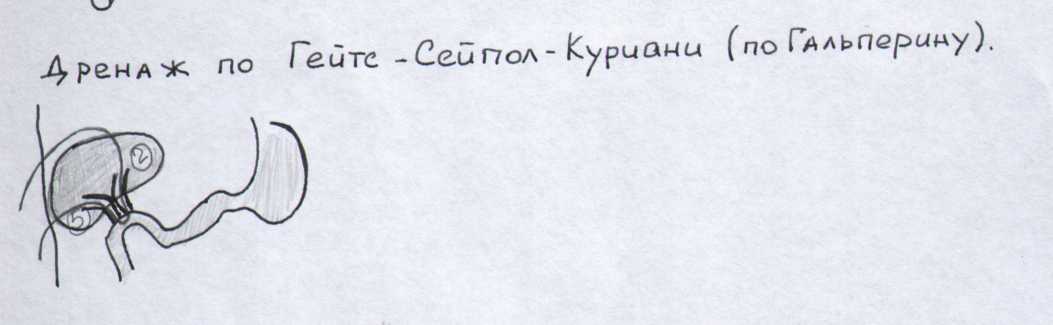 Дренаж по Гейтс-Сейпол-Куриани (по Гальперину).
2
5